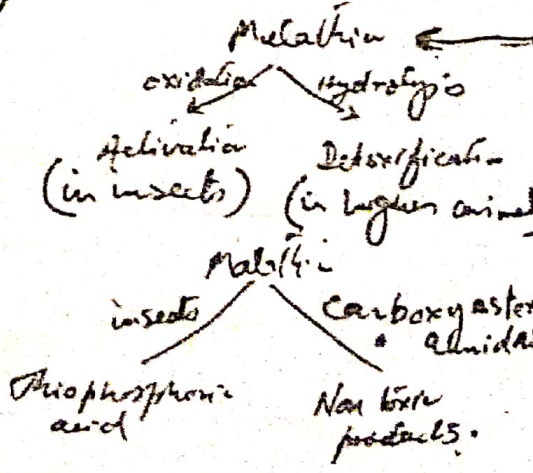 Malathion
oxidation Hydrolysis
Activation Detoxification
(in insects) (in higher animal
Malathion
insects Carboxyester
amidas
Thiophosphoric Non toxic
acid products.